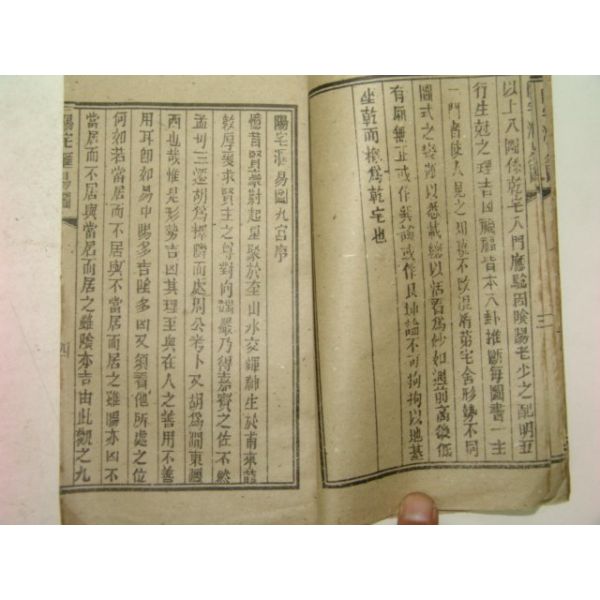 以上八圖係乾宅八門應驗因陰陽老少之配明五
行生尅之理吉凶禍福皆本八卦推斷每圖書一主
一門者使人見之如破不致混淆第宅舍形勢不同
圖式之變難以悉載總以活看為妙如遇前高後低
有廟無正或作巽論或作艮坤論不可拘拘以地基
坐乾而槪為乾宅也
三
陽宅滙易圖九宮序
憶昔賢豪蔚起星聚於奎山水交輝神生於甫來龍
乾厚爰求賢主之尊對向謹嚴乃得嘉賓之佐不然
孟母三遷胡為擇隣而處周公考卜又胡為澗東瀍
西也哉惟是形勢吉凶其理至與在人之善用不善
用耳卽如易中陽多吉陰多凶又須看他所處之位
何如若當居而不居與不當居而居之雖陽亦凶不
當居而不居與當居而居之雖陰亦吉由此觀之九
陽宅滙易圖
四